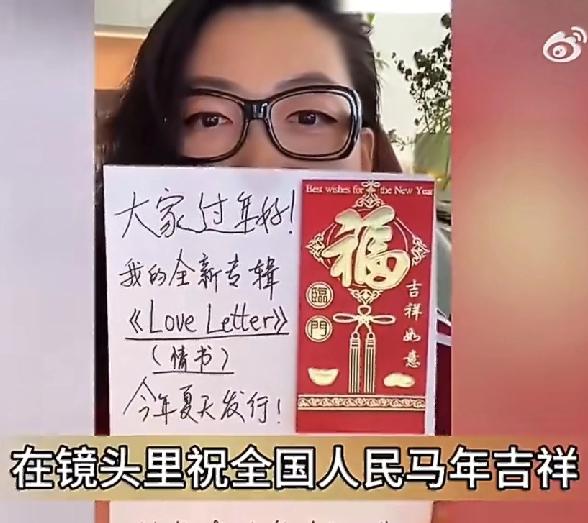 大家过年好!
我的全新专辑
《Love Letter》
(情书)
今年夏天发行!
Best wishes for the New Year
福
臨
門
吉祥如意
在镜头里祝全国人民马年吉祥